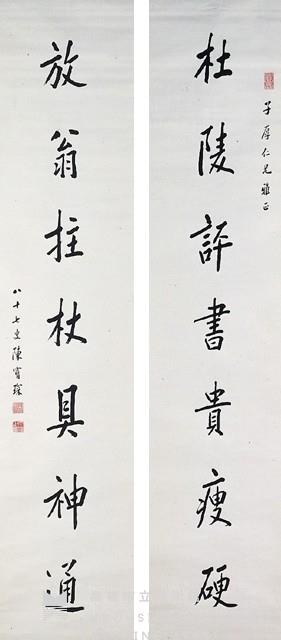 子厚仁兄雅正
杜陵評書貴瘦硬
放翁拄杖具神通
八十七叟陳寶琛